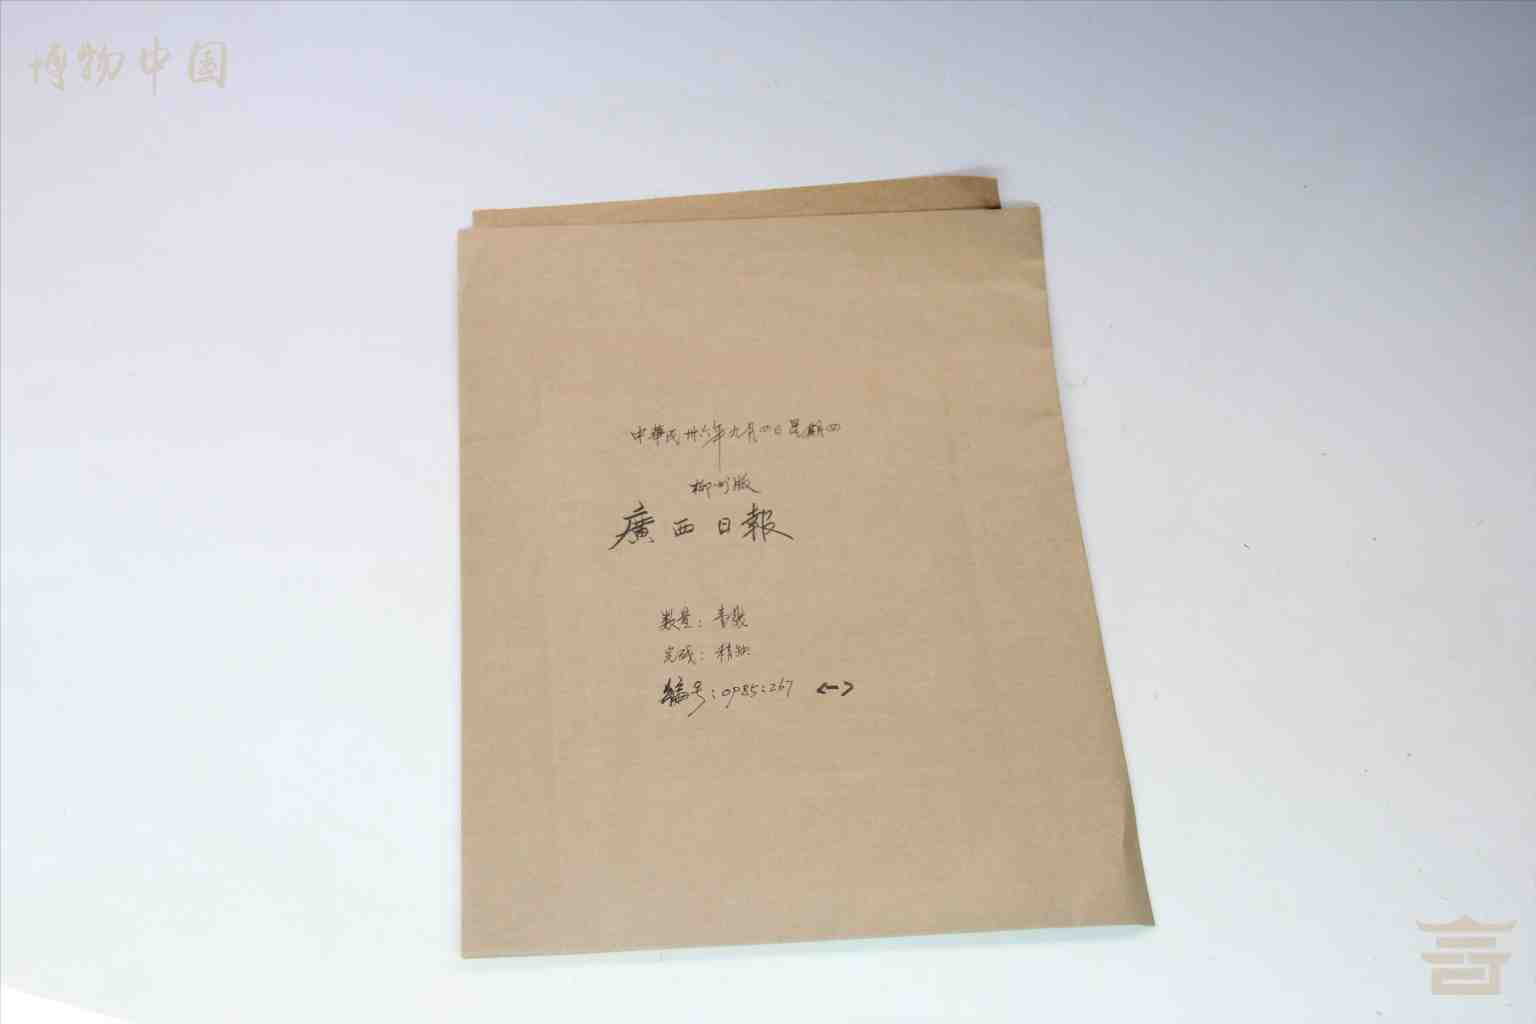 博物中国
中華民卅六年九月四日星期四
柳州版
廣西日報
数量：壹张
完残：稍缺
编号：0985：267 <一>